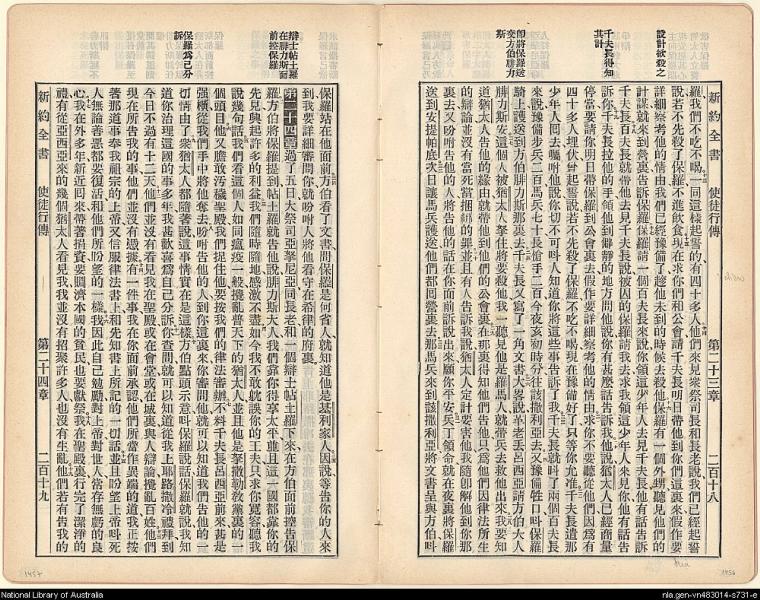 新約全書 使徒行傳 第二十三章 二百十八
設計欲殺之
千夫長得知其計
即將保羅送交方伯腓力斯
羅我們不吃不喝一同這樣起誓的有四十多人他們來見衆祭司長和長老說我們已經起誓
說若不先殺了保羅不進飲食現在求你們和公會請千夫長明日帶他到你們這裏來假作要
詳細察考他的情由我們已經豫備了趁他未到的時候去殺他保羅有一個外甥聽見他們的
計謀就來到營裏告訴保羅保羅請一個百夫長來說你領這少年人去見千夫長他有話告訴
千夫長百夫長就帶他去見千夫長說被囚的保羅請我去求我領這少年人來見你他有話告
訴你千夫長拉他的手領他到僻靜的地方問他說你有甚麼話告訴我他說猶太人已經商量
停當要請你明日帶保羅到公會裏去假作要詳細察考他的情由求你不要聽從他們因爲有
四十多人埋伏曾起誓說若不先殺了保羅不吃不喝現在豫備好了只等你允准千夫長遣那
少年人回去囑咐他說你切不可呌人知道你將這些事告訴了我千夫長就呌了兩個百夫長
來說豫備步兵二百馬兵七十長槍手二百今夜亥初時分往該撒利亞去又豫備牲口呌保羅
騎上護送到方伯腓力斯那裏去千夫長又寫了一角文書大畧說革老丟呂西亞請方伯大人
腓力斯安這個人被猶太人拏住將要殺他我一聽見他是羅馬人就帶兵去救他出來我要知
道猶太人告他的緣由就帶他到他們的公會裏去在那裏得知他們告他只爲他們因律法所生
的辯論並沒有當死當捆綁的罪並且有人告訴我說猶太人定計要害他我隨即解他到你那
裏去又吩咐告他的人將告他的話在你面前訴說出來願你平安兵丁領命就在夜裏將保羅
送到安提帕底次日讓馬兵護送他們都回營裏去那馬兵來到該撒利亞將文書呈與方伯呌
辯士帖土羅在腓力斯面前控保羅
保羅爲己分訴
保羅站在他面前方伯看了文書問保羅是何省人就知道他是基利家人因說等告你的人來
到我要詳細審問你就吩咐人將他看守在希律的府裏
第二十四章過了五日大祭司亞拏尼亞同長老和一個辯士帖土羅下來在方伯面前控告保
羅方伯將保羅提到帖土羅就告他說腓力斯大人我們靠你得享太平並且這一國都靠你的
先見興起許多的利益我們隨時隨地感激不盡如今我不敢就誤你的工夫只求你寬容聽我
說幾句話我們看這個人如同瘟疫一般攪亂普天下的猶太人並且他是拏撒勒敎黨裏的一
個頭目他又膽敢汚穢聖殿我們捉住他要按我們的律法審辦不料千夫長呂西亞前來甚是
强橫從我們手中將他奪去吩咐告他的人到你這裏來你審問他就可以知道我們告他的一
切情由了衆猶太人都隨著說這事情實在是這樣方伯點頭示意呌保羅說話保羅就說我知
道你治理這國的事多年我甚歡喜爲自己分訴你查問就可以知道從我上耶路撒冷禮拜到
今日不過有十二天他們並沒有看見我在聖殿或在會堂或在城裏與人辯論攪亂百姓他們
現在所告我的事他們並沒有憑據有一件事我在你面前承認他們所當作異端的道我正按
著那道事奉我祖宗的上帝又信服律法書上和先知書上所記的一切話並且盼望上帝呌死
人無論善惡都要復活和他們所盼望的一樣我因此自己勉勵對上帝對世人常存無虧的良
心我在外多年新近回來帶著捐資要賙濟本國的貧民也要獻祭我在聖殿裏行完了潔淨的
禮有從亞西亞來的幾個猶太人看見我我並沒有招聚許多人也沒有生亂他們若有告我的
新約全書 使徒行傳 第二十四章 二百十九
1457
1456
National Library of Australia
nla.gen-vn483014-s731-e